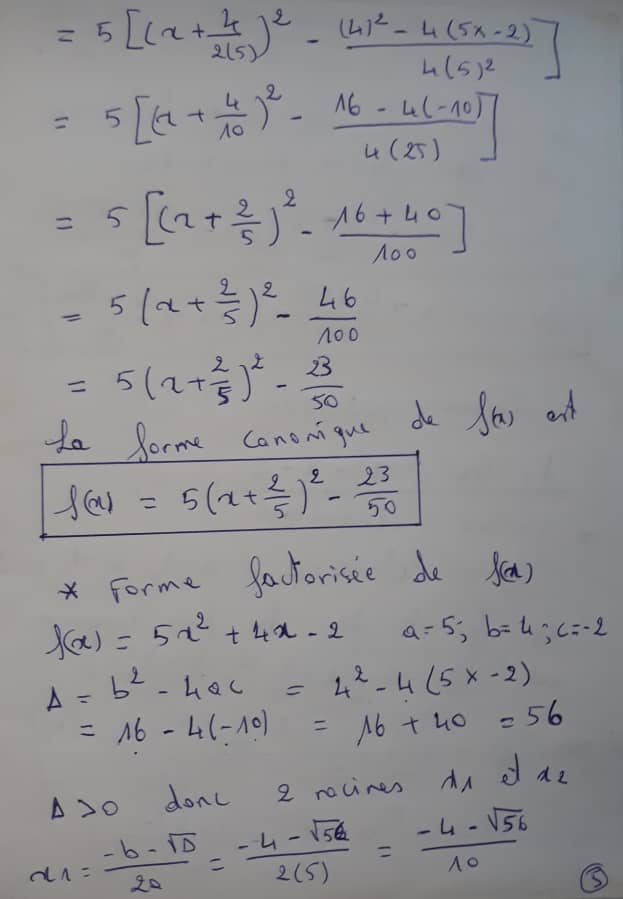 = 5 [(x + 4/2(5))² - (4)² - 4(5x-2)/4(5)²]
= 5 [(x + 4/10)² - 16 - 4(-10)/4(25)]
= 5 [(x + 2/5)² - 16 + 40/100]
= 5 (x + 2/5)² - 46/100
= 5 (x + 2/5)² - 23/50
La forme canonique de f(x) est
f(x) = 5(x + 2/5)² - 23/50
* Forme factorisée de f(x)
f(x) = 5x² + 4x - 2 a=5; b=4; c=-2
Δ = b² - 4ac = 4² - 4(5 x -2)
= 16 - 4(-10) = 16 + 40 = 56
Δ > 0 donc 2 racines x1 et x2
x1 = -b - √Δ/2a = -4 - √56/2(5) = -4 - √56/10
3